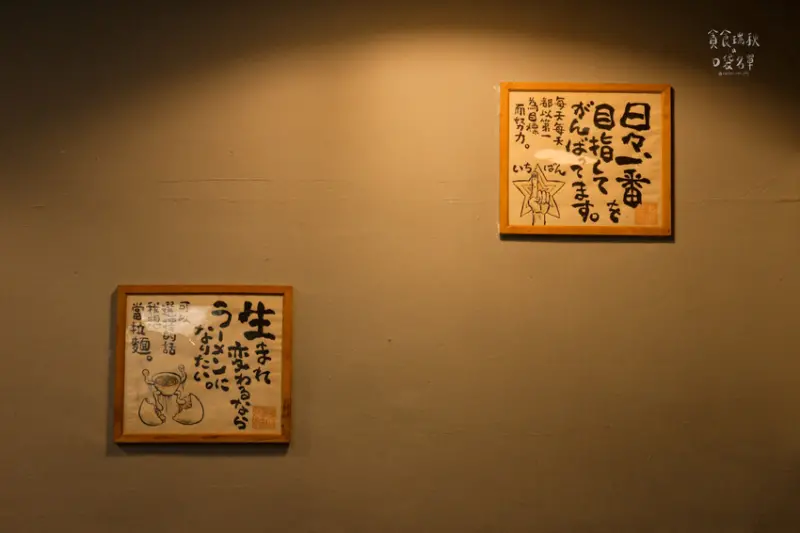 貪食瑞秋
の
口袋名單
日々、一番を
目指して
がんばってます。
每天每天
都以第一
為目標
而努力。
いちばん
生まれ
変わるなら
ラーメンに
なりたい。
可以
選擇的話
我想
當拉麵。